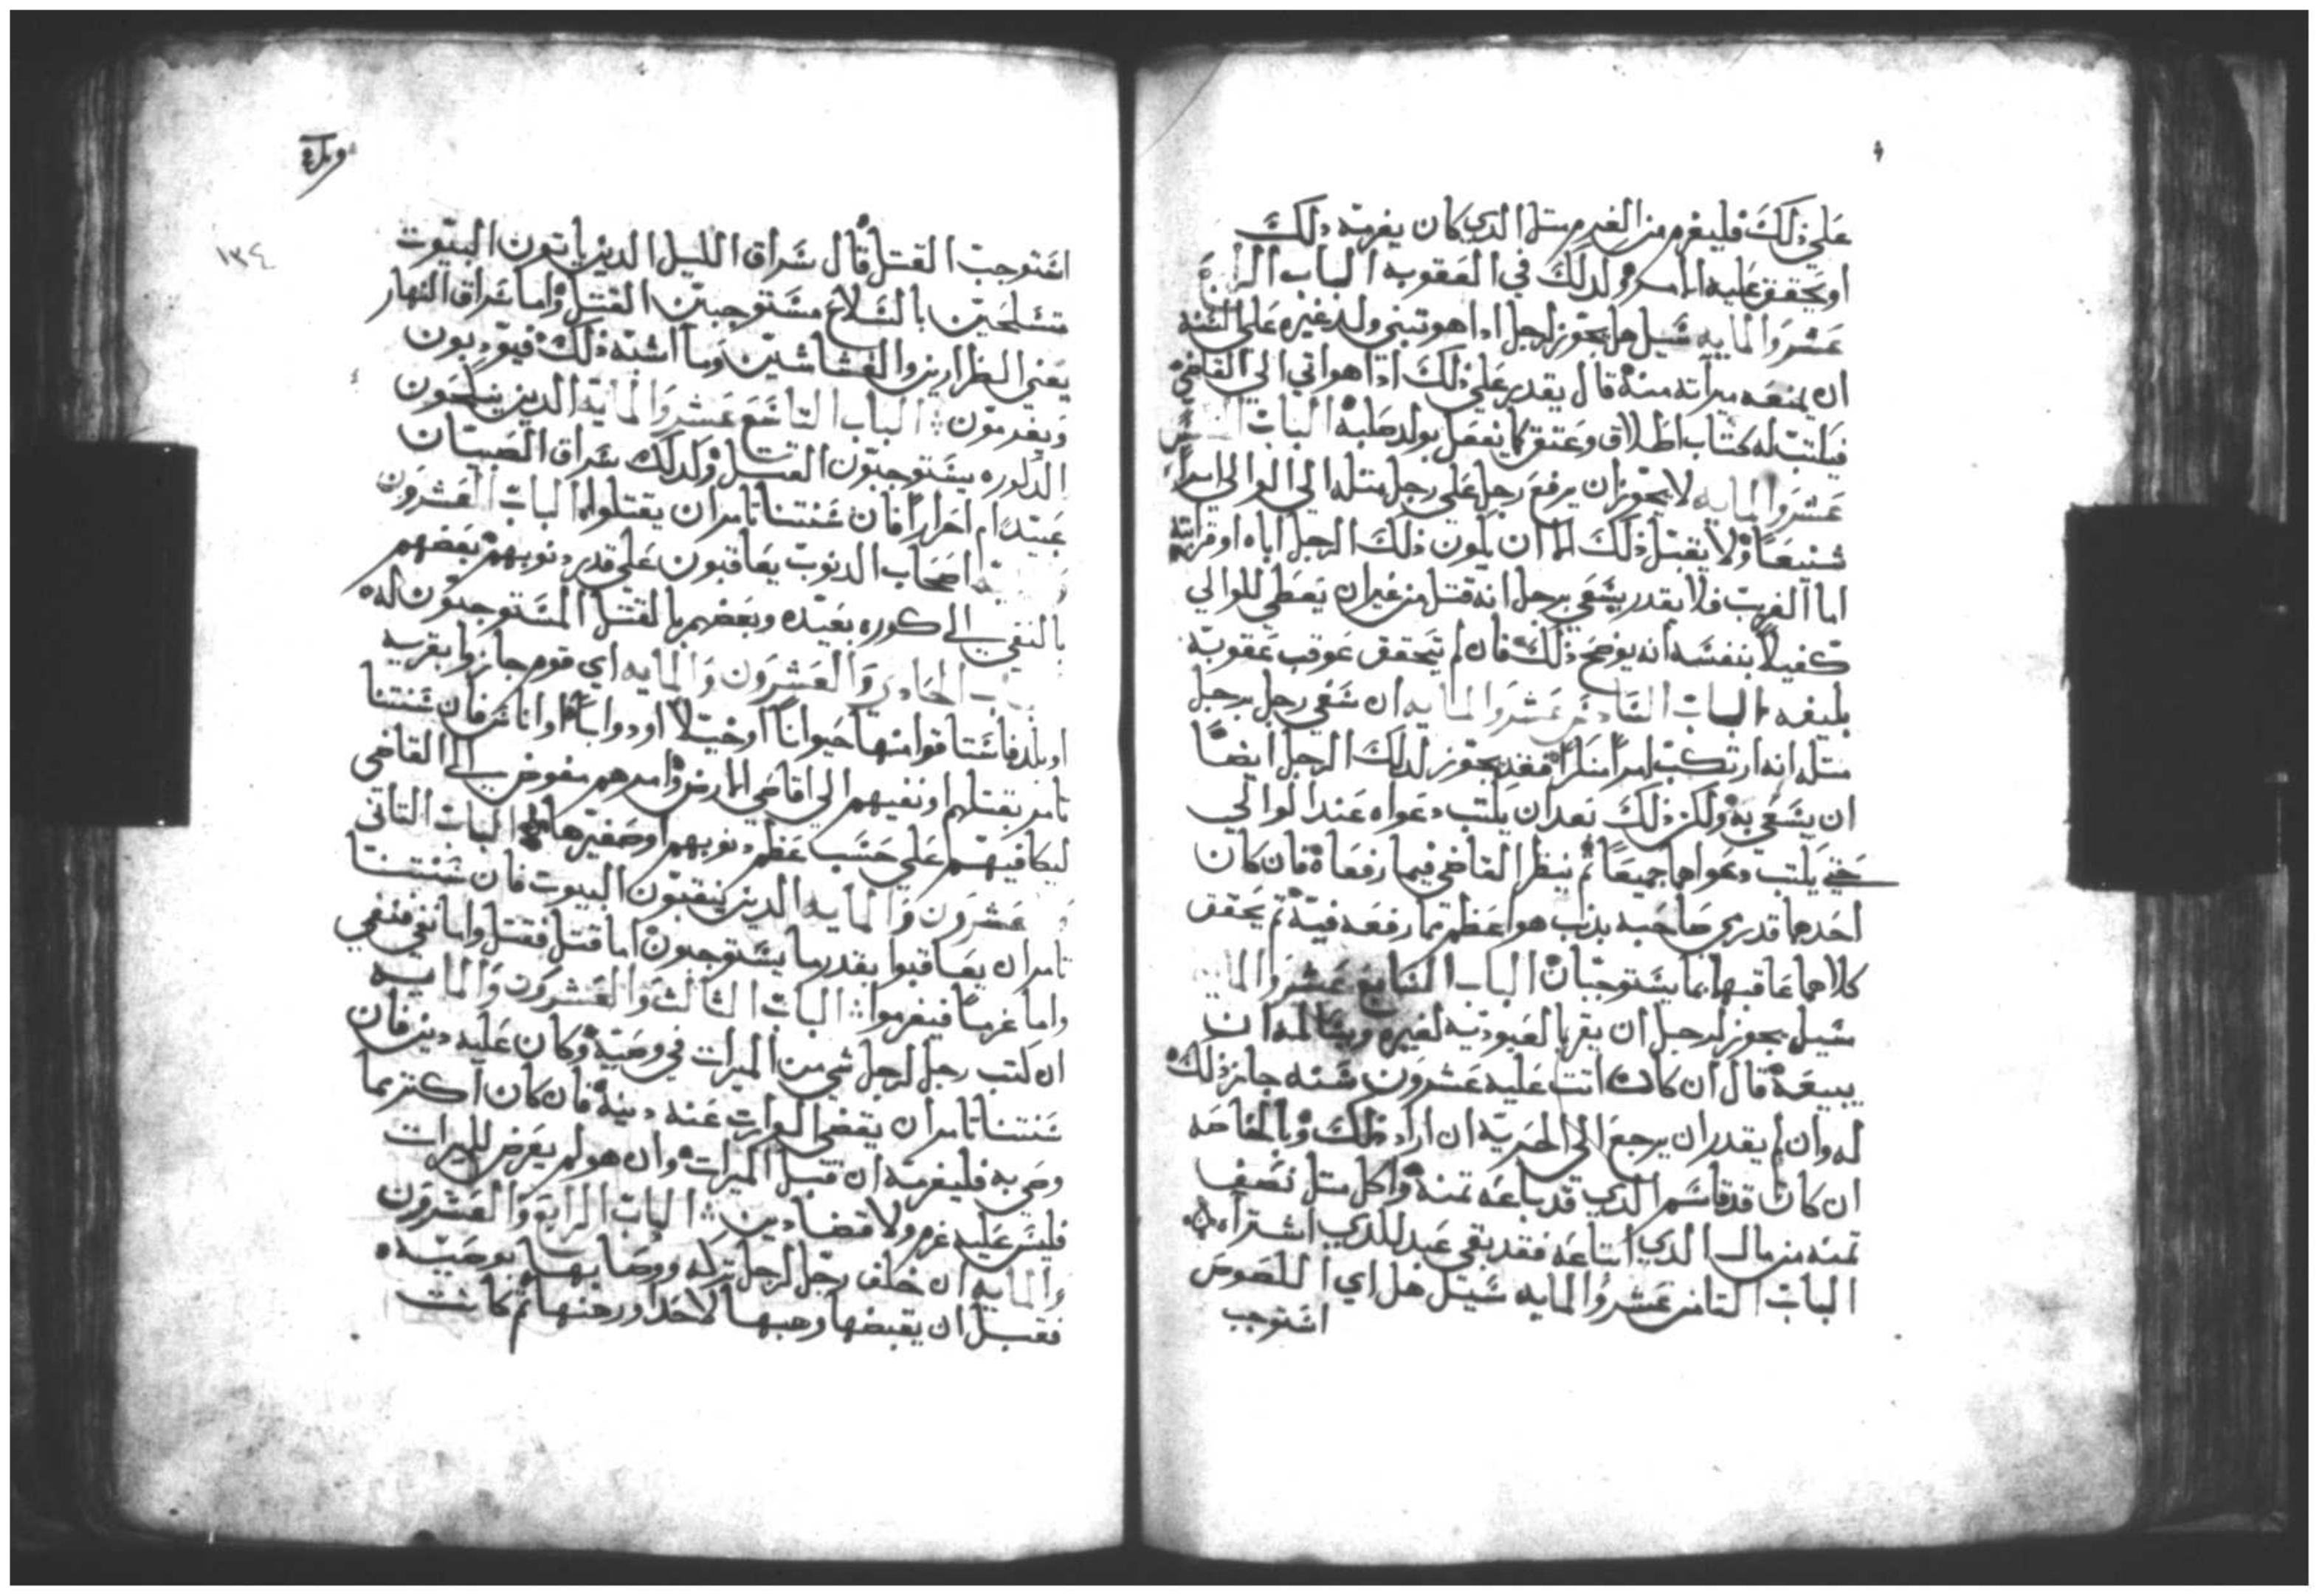 علي ذلك فليغرم من الغرم مثل الدي كان يغرمه دلك
او يحقق عليه الامر ولدلك في العقوبه الباب الرابع
عشر والمايه سيل هل يجوز لرجل ادا هو تبني ولد غيره علي انه
ان يمنعه ميراته منه قال يقدر علي ذلك ادا هو اتي الي القاضي
فيكتب له كتاب اطلاق وعتق كما يفعل بولد صلبه الباب الخامس
عشر والمايه لا يجوز ان يرفع رجل علي رجل مثله الي الوالي امراً
شنيعاً ولا يقبل ذلك الا ان يكون ذلك الرجل اباه او قرابته
اما الغريب فلا يقدر يسعي برجل انه قتل من غير ان يعطي للوالي
كفيلاً بنفسه انه يوضح ذلك فان لم يتحقق عوقب عقوبة
بليغه الباب السادس عشر والمايه ان سعي رجل برجل
مثله انه ارتكب امراً منكراً فقد يجوز لدلك الرجل ايضاً
ان يسعي به ولكن ذلك بعد ان يكتب دعواه عند الوالي
حتي يكتب دعواهما جميعاً ثم ينظر القاضي فيما رفعاه فان كان
احدهما قد رمي صاحبه بذنب هو اعظم مما رفعه فيه ثم يحقق
كلاهما عاقبهما بما يستوجبان الباب السابع عشر والمايه
سيل يجوز لرجل ان يقر بالعبوديه لغيره ويساله ان
يبيعه قال ان كان اتت عليه عشرون سنه جاز ذلك
له وان لم يقدر ان يرجع الي الحريه ان اراد ذلك وبالخاصه
ان كان قد قاسم الدي قد باعه تمنه واكل مثل نصف
تمنه من مال الدي ابتاعه فقد بقي عبد للدي اشتراه
الباب التامن عشر والمايه سيل هل اي اللصوص
استوجب
١٣٤
استوجب القتل قال سراق الليل الدين ياتون البيوت
متسلحين بالسلاح مستوجبين القتل واما سراق النهار
يعني الطرارين والغشاشين وما اشبه ذلك فيودبون
ويغرمون الباب التاسع عشر والمايه الدين ينكحون
الدكوره يستوجبون القتل ولدلك سراق الصبيان
عبيداً ام احراراً فان سنتنا تامر ان يقتلوا الباب العشرون
اصحاب الدنوب يعاقبون علي قدر دنوبهم بعضهم
بالنفي الي كوره بعيده وبعضهم بالقتل المستوجبون له
الحادي والعشرون والمايه اي قوم جازوا بقريه
او بلد فاستاقوا منها حيواناً او خيلاً او دواباً او اناس فان سنتنا
تامر بقتلهم او نفيهم الي اقاصي الارض وامرهم مفوض الي القاضي
ليكافيهم علي حسب عظم دنوبهم او صغيرها الباب التاني
عشرون والمايه الدين ينقبون البيوت فان سنتنا
تامر ان يعاقبوا بقدر ما يستوجبون اما قتل فقتل واما نفي فنفي
واما غرماً فيغرموا الباب الثالث والعشرون والمايه
ان كتب رجل لرجل شي من الميرات في وصية وكان عليه دين فان
سنتنا تامر ان يقضي الوارت عنه دينه فان كان اكتر مما
وصي به فليغرمه ان قبل الميرات وان هو لم يعرض للميرات
فليس عليه غرم ولا قضا دين الباب الرابع والعشرون
والمايه ان خلف رجل لرجل تركه ووصا بها بوصيه
فقبل ان يقبضها وهبها لاحد او رهنها ثم كانت